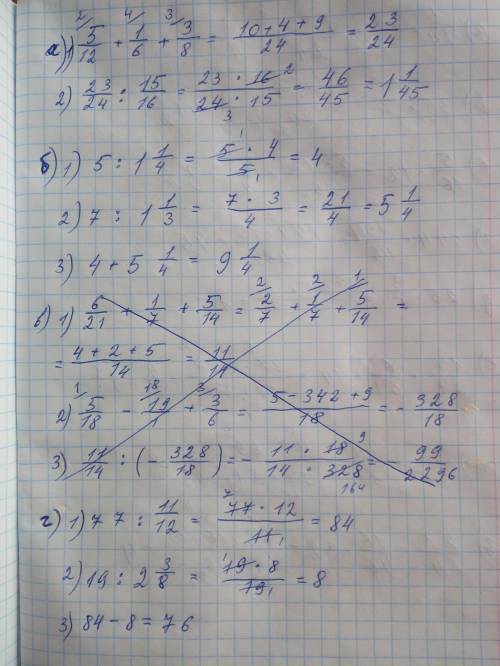 а) 1) 5/12 + 1/6 + 3/8 = (10 + 4 + 9)/24 = 23/24
2) 23/24 : 15/16 = (23 · 16)/(24 · 15) = 46/45 = 1 1/45
б) 1) 5 : 1 1/4 = (5 · 4)/5 = 4
2) 7 : 1 1/3 = (7 · 3)/4 = 21/4 = 5 1/4
3) 4 + 5 1/4 = 9 1/4
в) 1) 6/21 + 1/7 + 5/14 = 2/7 + 1/7 + 5/14 =
= (4 + 2 + 5)/14 = 11/14
2) 5/18 - 19/1 + 3/6 = (5 - 342 + 9)/18 = - 328/18
3) 11/14 : (- 328/18) = - (11 · 18)/(14 · 328) = - 99/2296
г) 1) 77 : 11/12 = (77 · 12)/11 = 84
2) 19 : 2 3/8 = (19 · 8)/19 = 8
3) 84 - 8 = 76